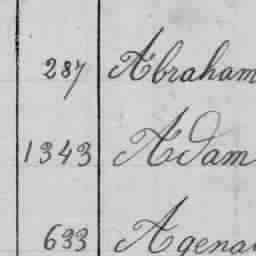 287 Abraham
1343 Adam
633